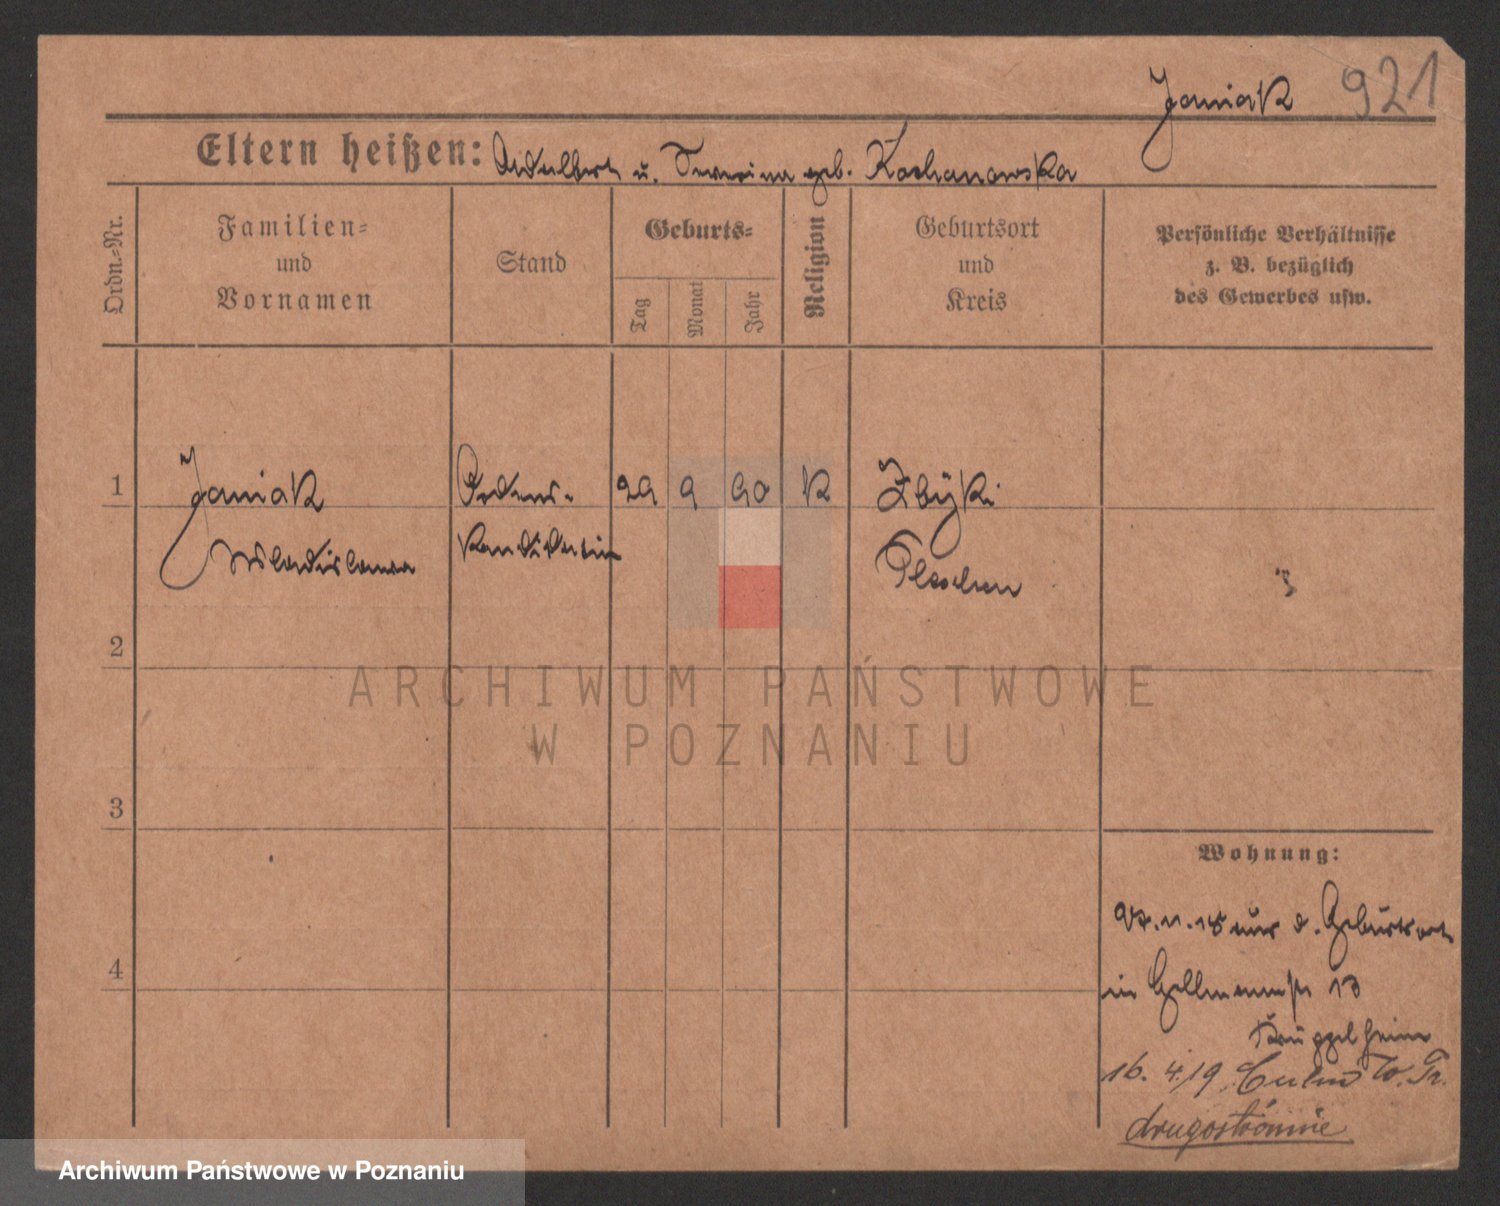 Janiak 921
Eltern heißen: Adalbert u. Severina geb. Kochanowska
Ordn.-Nr.
Familien-
und
Vornamen
Stand
Geburts-
Tag
Monat
Jahr
Religion
Geburtsort
und
Kreis
Persönliche Verhältnisse
z. B. bezüglich
des Gewerbes usw.
1 Janiak Ordens- 29 9 90 K Zbyki
Wladislawa Kandidatin Pleschen
2
ARCHIWUM PAŃSTWOWE
W POZNANIU
3
Wohnung:
aus d. Geburtsort
4
in
16. 4. 19 Culm W. Pr.
drugostronnie
Archiwum Państwowe w Poznaniu